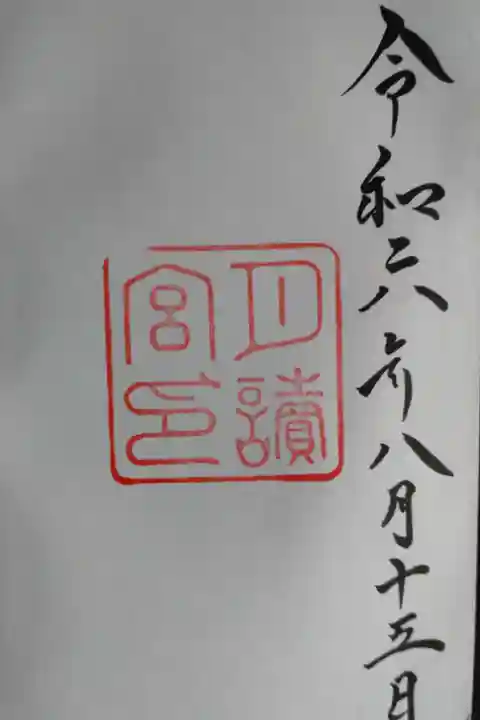 令和六年八月十五日
月讀
宮印